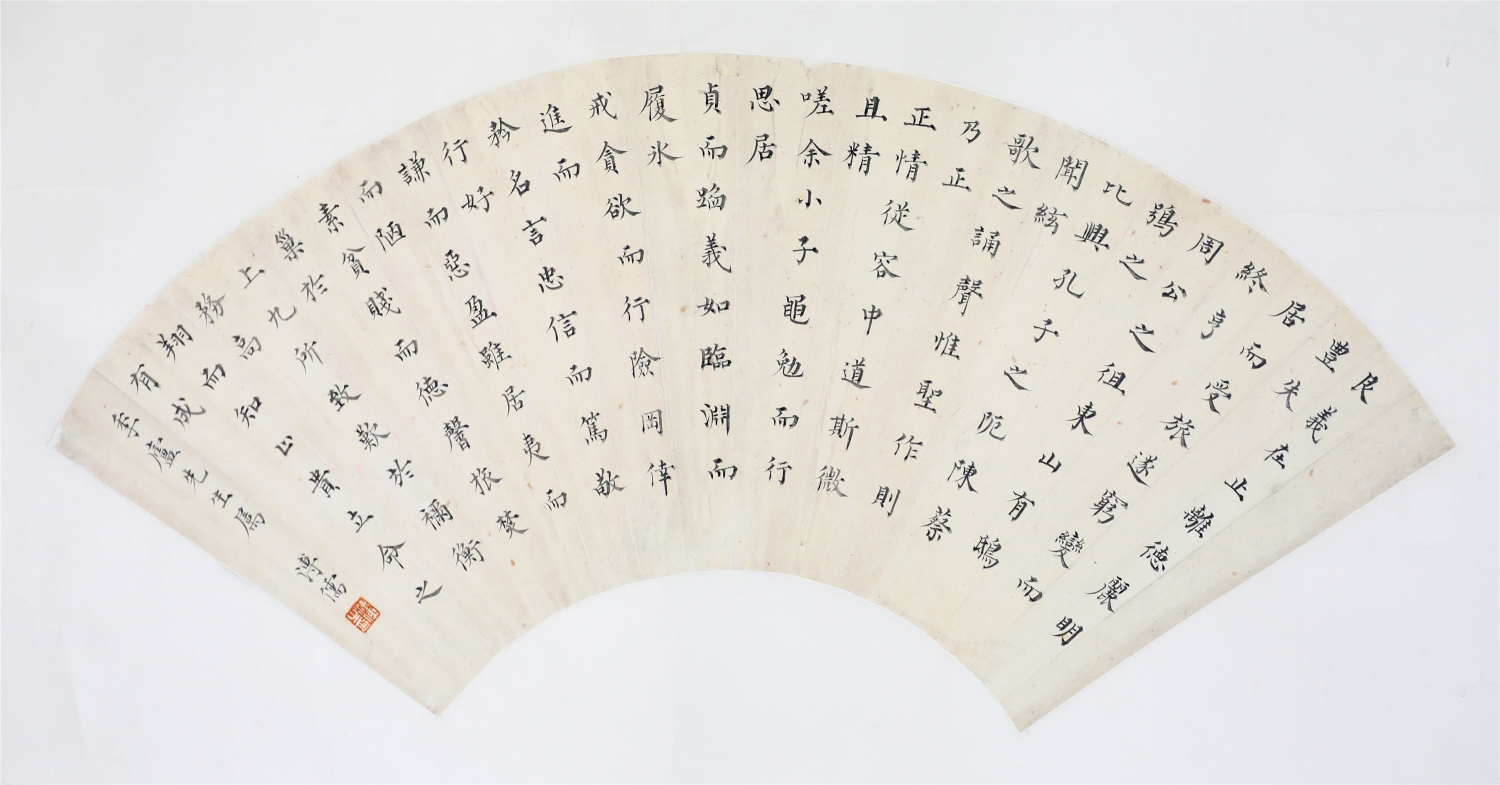 艮義在止離德麗明
豊失
居而受旅遂窮變而
終亨
周公之徂東山有鴟
鴞之
比興孔子之阨陳蔡
聞絃
歌之誦聲惟聖作則
乃正
正情從容中道斯微
且精
嗟余小子黽勉而行
思居
貞而蹈義如臨淵而
履氷
戒貪欲而行險罔倖
進而
矜名言忠信而篤敬
行好
謙而惡盈雖居夷而
而陋
素貧賤而德馨旅焚
巢於
上九所致歎於禰衡
務高
翔而知止貴立命之
有成
季廬先生属 溥儒